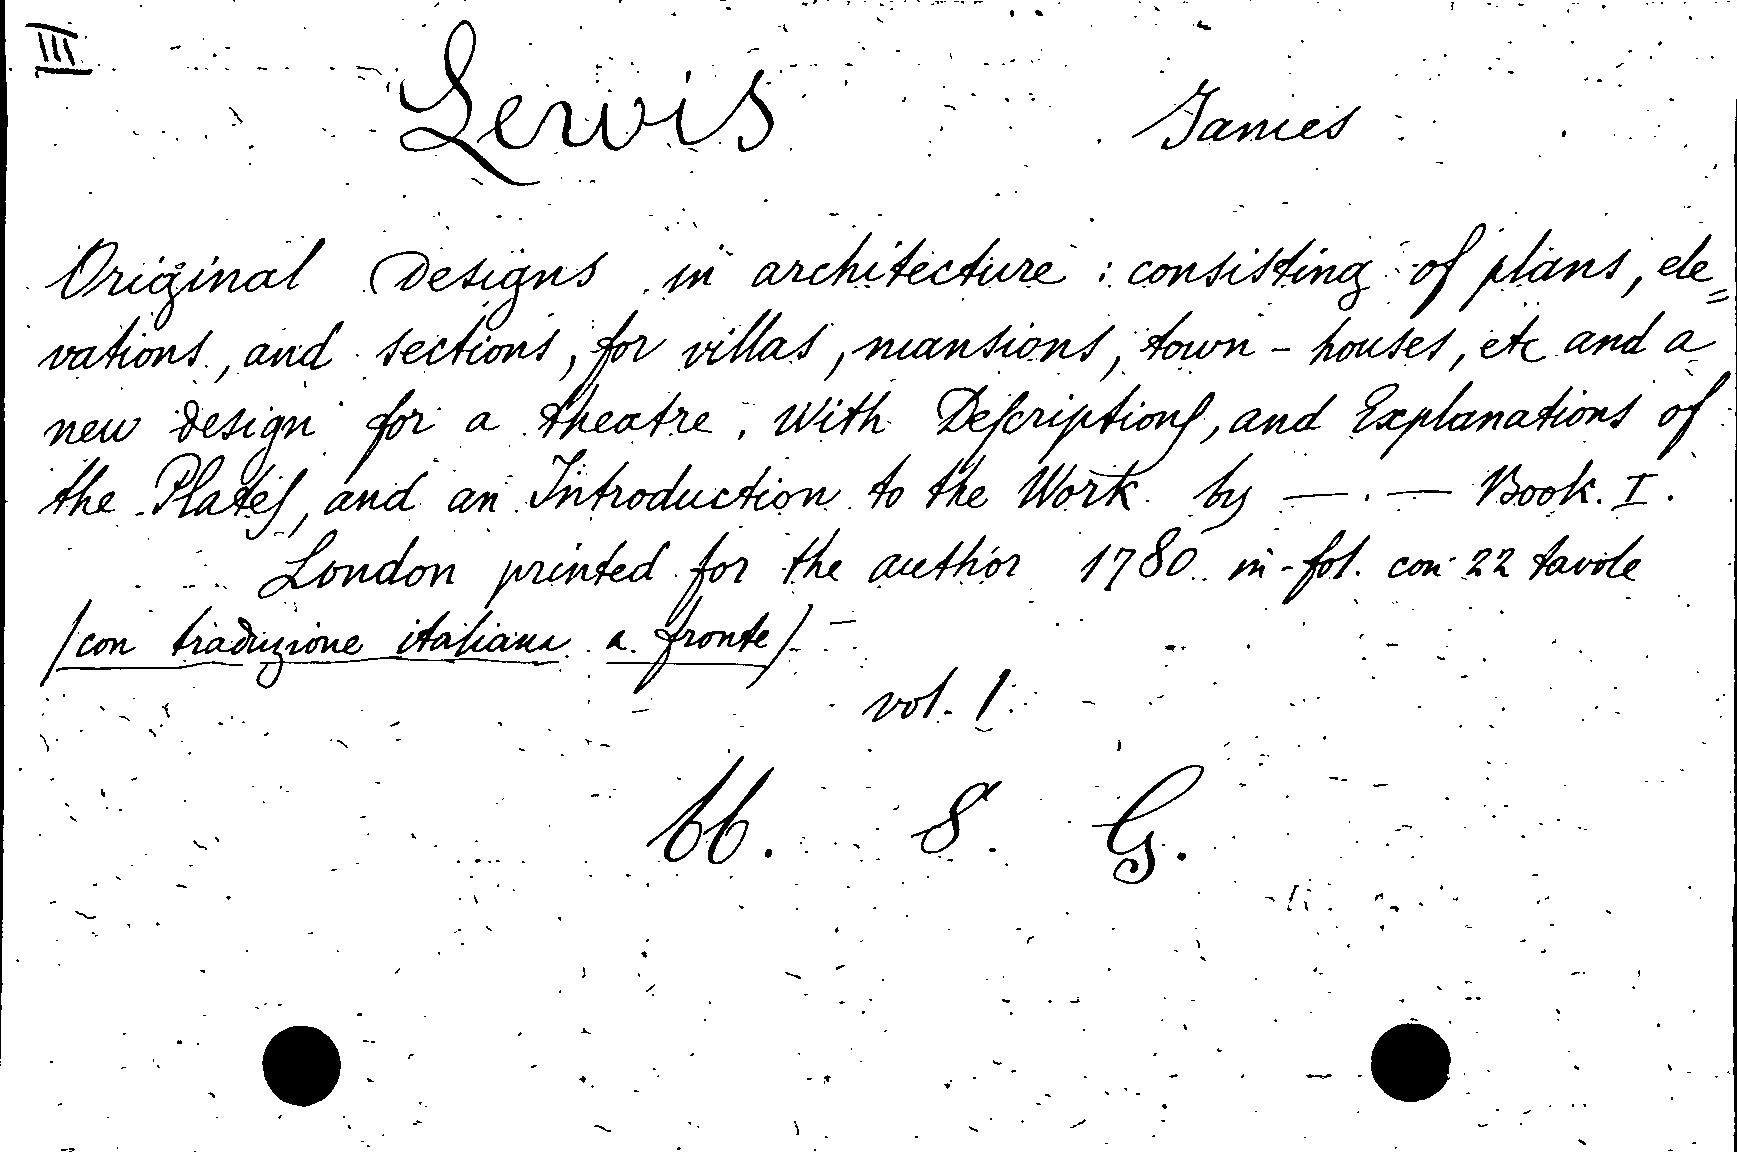 III
Lewis James
Original Designs in architecture : consisting of plans, ele=
vations, and sections, for villas, mansions, town - houses, etc and a
new design for a theatre. With Deſcriptionſ, and Explanations of
the Plateſ, and an Introduction to the Work by — . — Book. I.
London printed for the author 1780 in-fol. con 22 tavole
/con traduzione italiana a fronte/
vol. 1
66. 8. G.